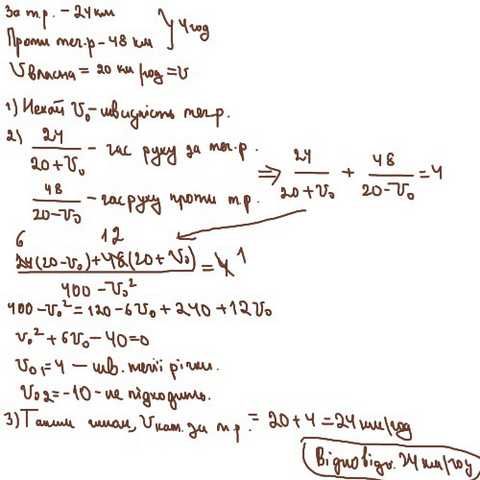 За т.р. - 24км
Проти теч.р - 48 км } 4 год
Vвласна = 20 км/год = V
1) Нехай V₀ - швидкість теч.р.
2) 24/(20+V₀) - час руху за теч.р.
48/(20-V₀) - час руху проти т.р. ⇒ 24/(20+V₀) + 48/(20-V₀) = 4
6 12
(24(20-V₀)+48(20+V₀))/(400-V₀²) = 4 1
400-V₀² = 120-6V₀+240+12V₀
V₀²+6V₀-40=0
V₀₁=4 - шв. течії річки.
V₀₂=-10 - не підходить.
3) Таким чином, Vкат. за т.р. = 20+4=24 км/год
Відповідь. 24 км/год